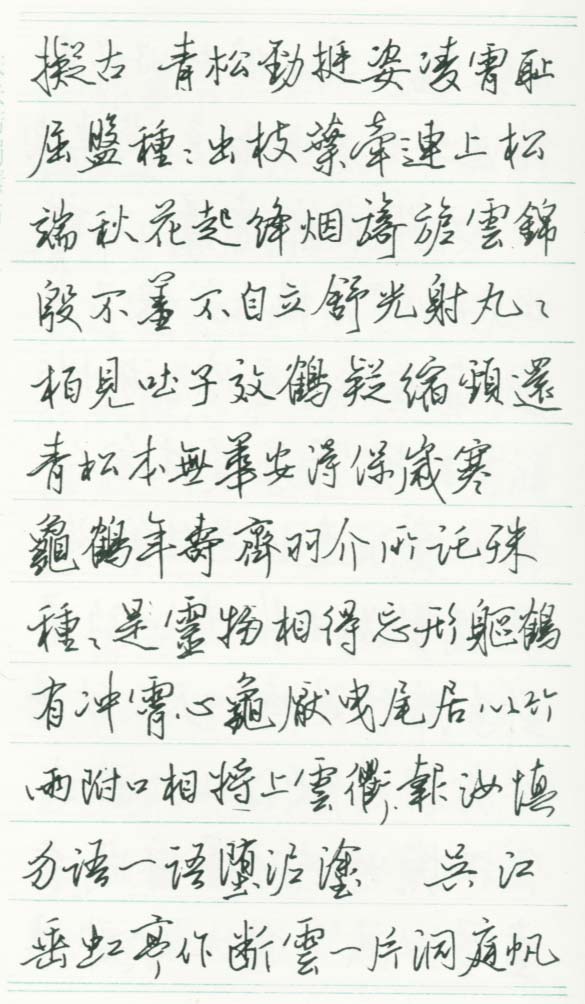 擬古 青松勁挺姿凌霄恥
屈盤種〻出枝葉牽連上松
端秋花起絳烟旖旎雲錦
殷不羞不自立舒光射丸〻
柏見吐子效鶴疑縮頸還
青松本無華安得保歲寒
龜鶴年壽齊羽介所託殊
種〻是靈物相得忘形軀鶴
有冲霄心龜厭曳尾居以竹
兩附口相將上雲衢報汝慎
勿語一語墮泥塗 吳江
垂虹亭作 断雲一片洞庭帆